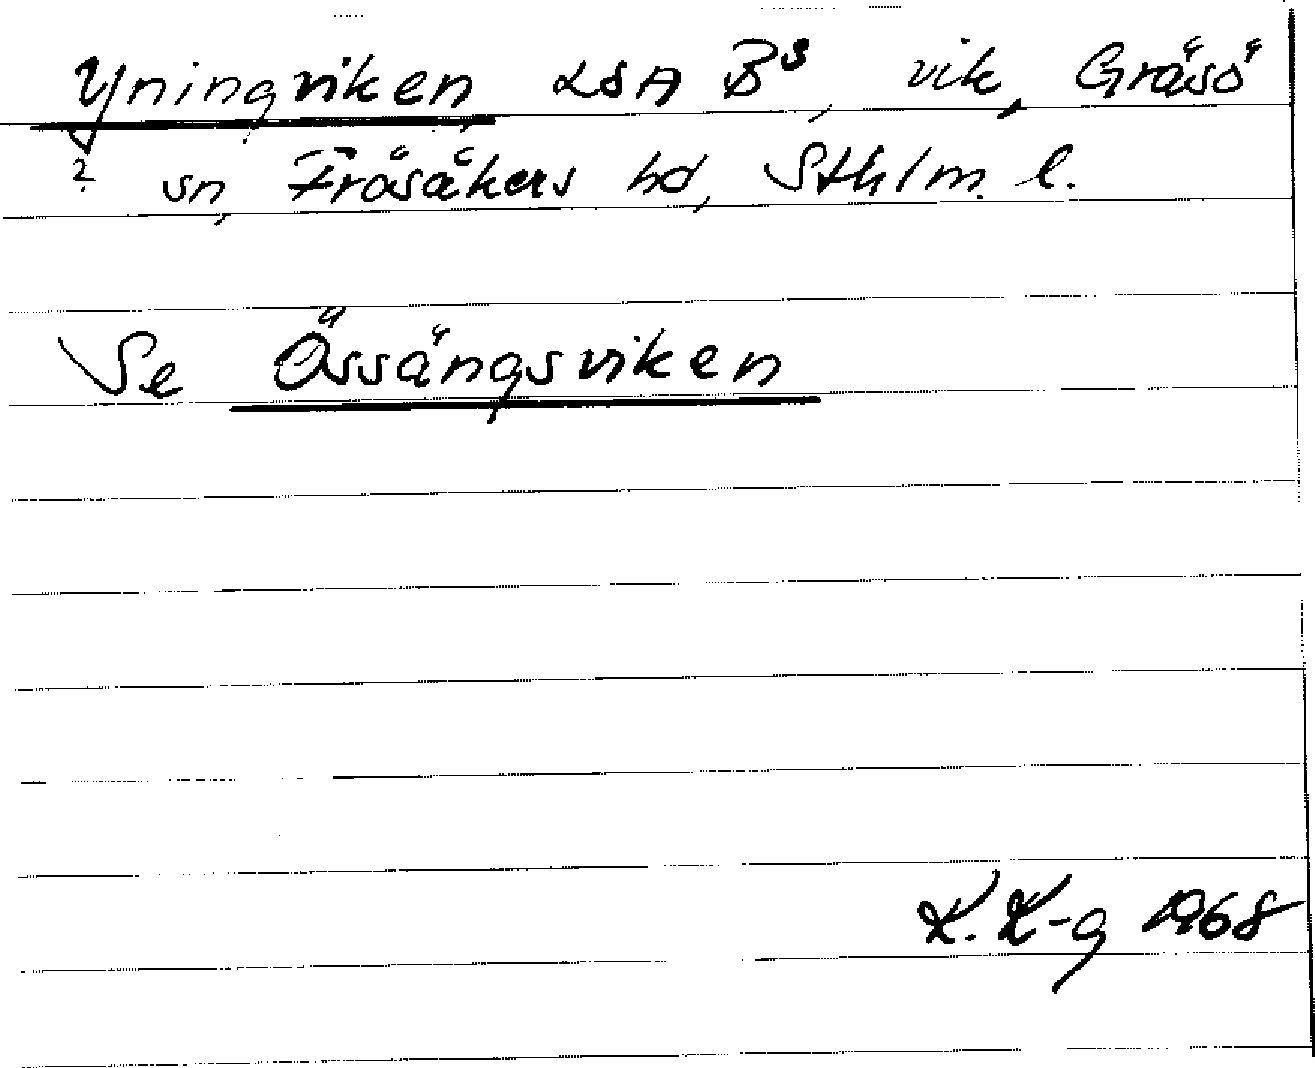 Yningviken, LSA B³, vik, Gräsö
? sn, Frösåkers hd, Sthlm l.
Se Össängsviken
K. K-g 1968